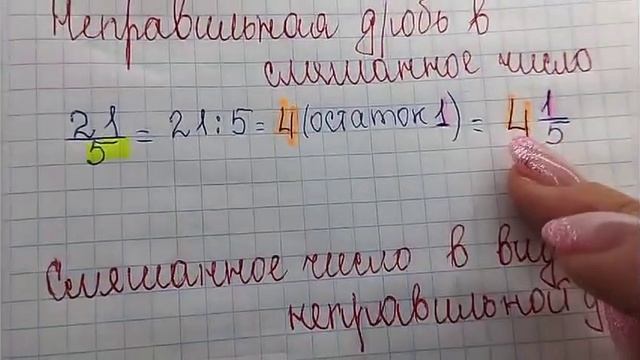 Неправильная дробь в
смешанное число
21/5 = 21:5 = 4 (остаток 1) = 4 1/5
Смешанное число в
неправильной